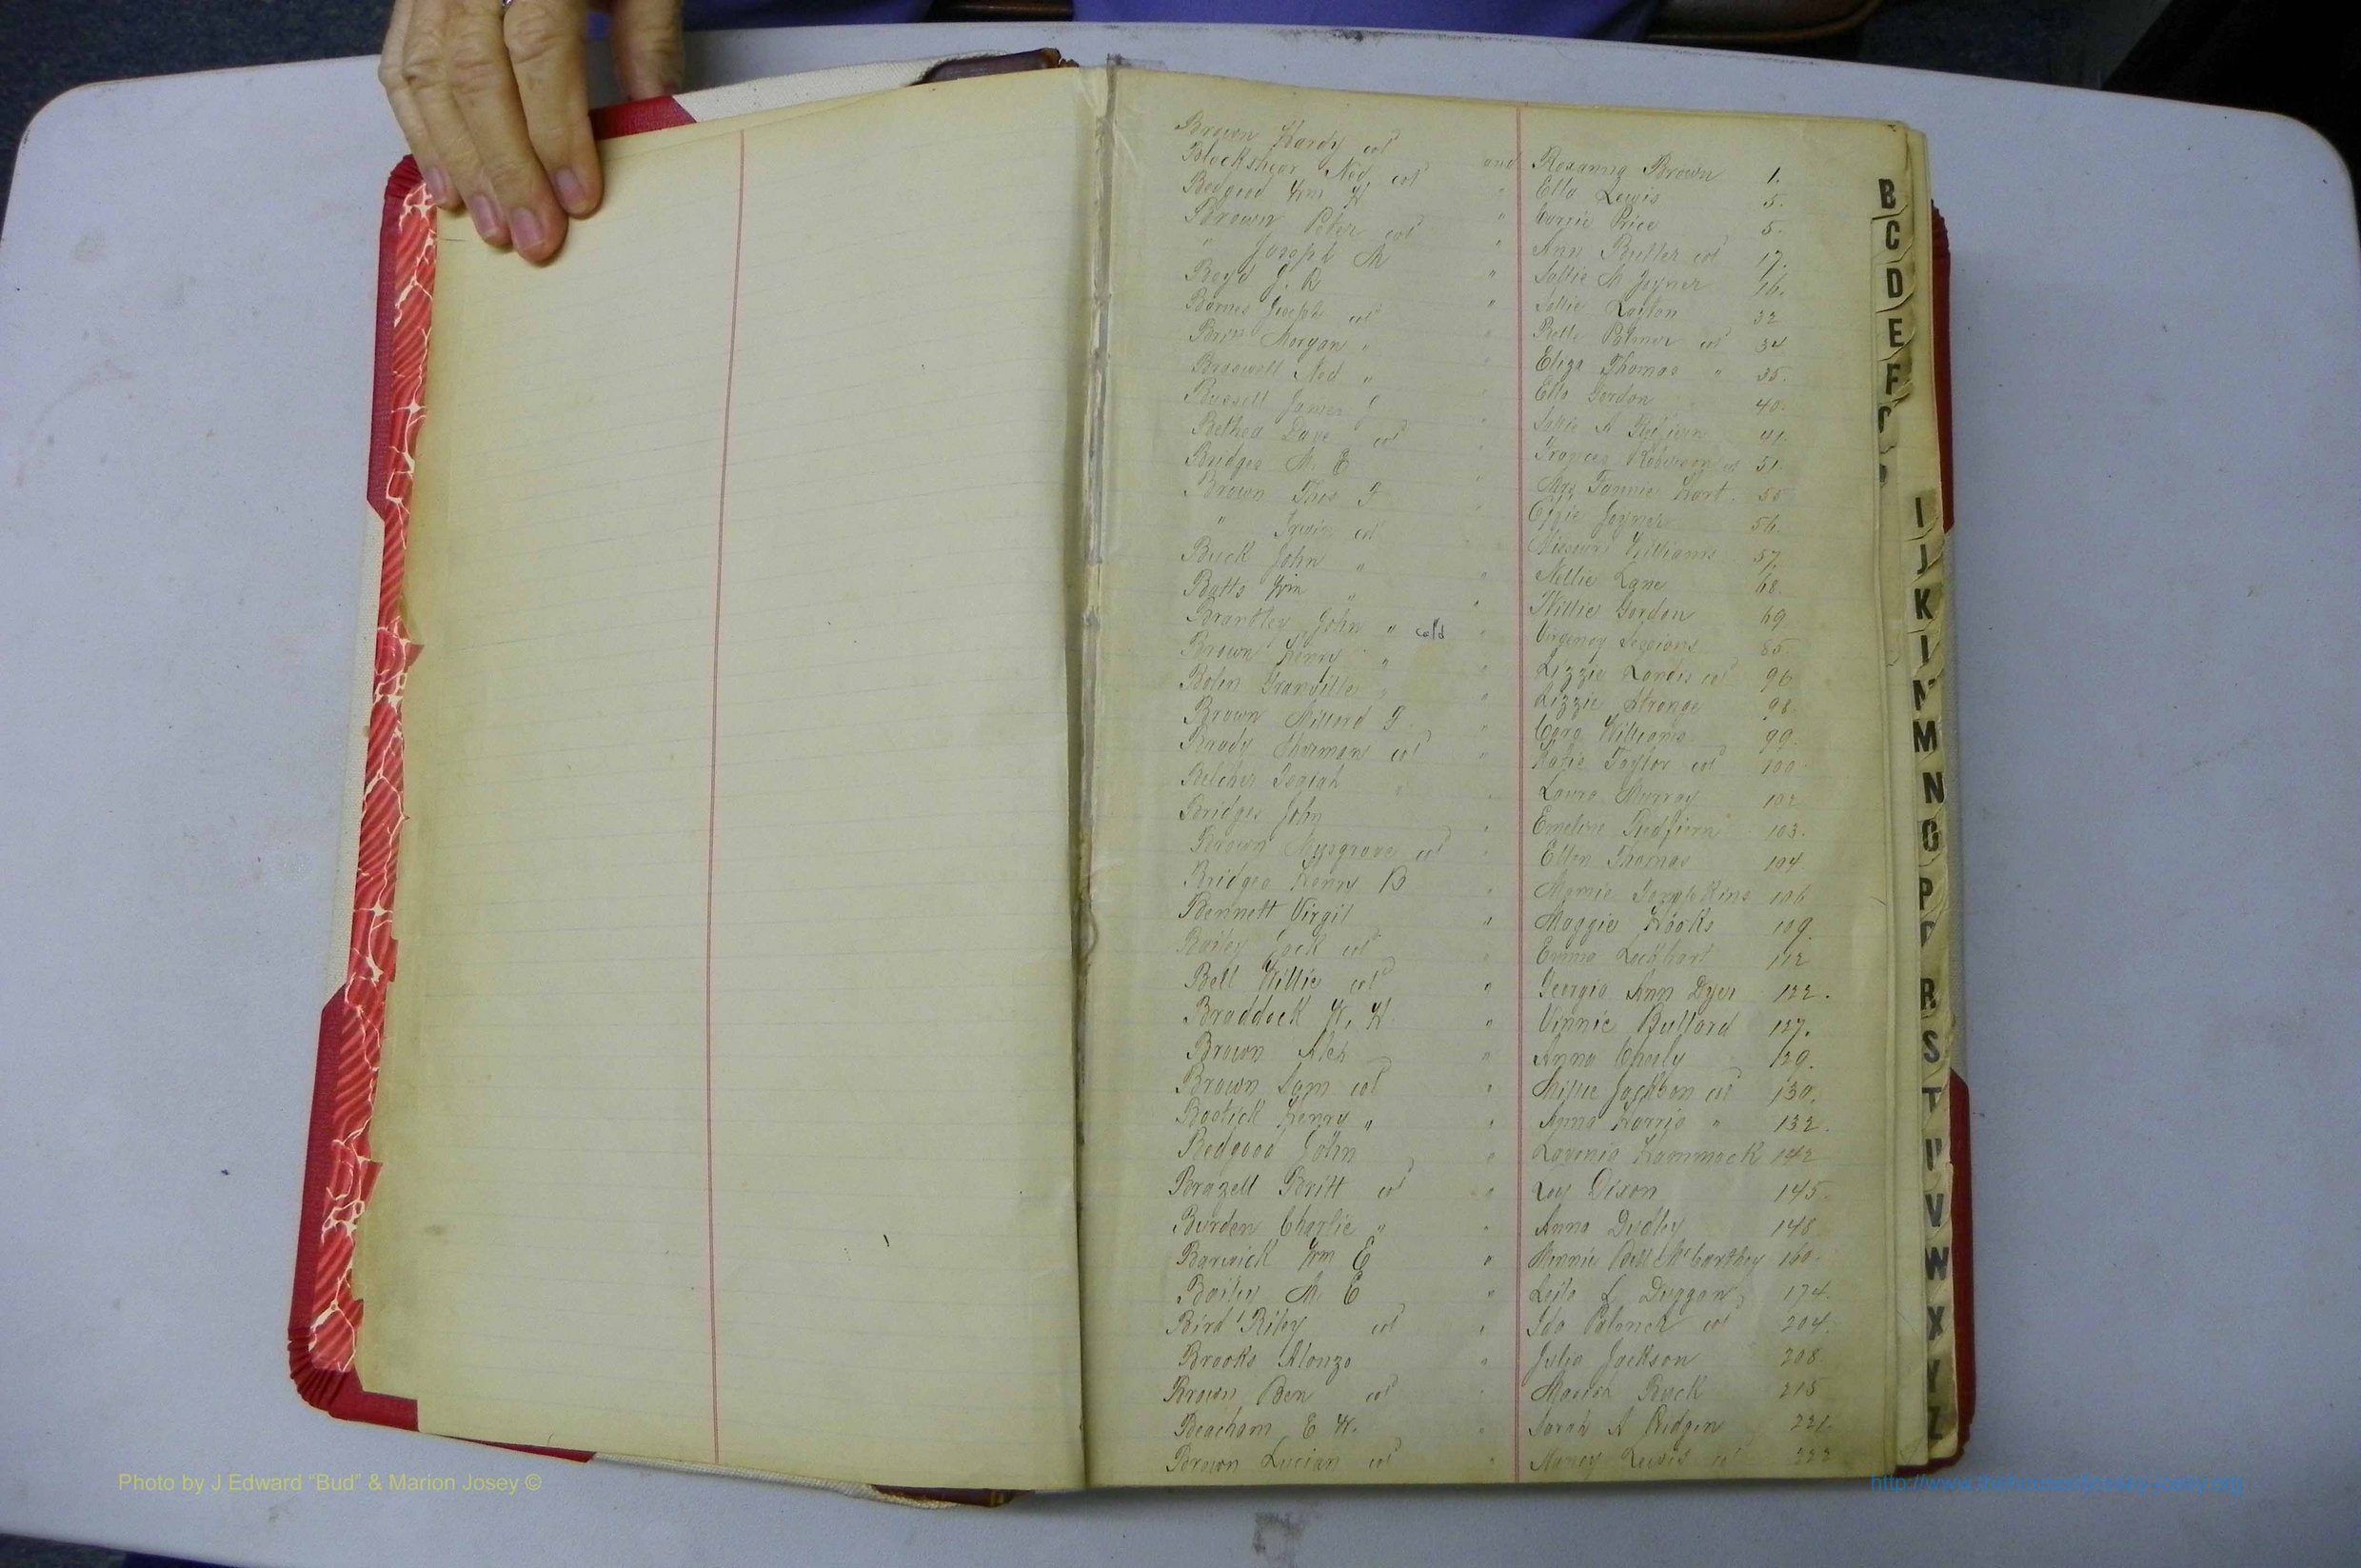 Brown Hardy col and Rosanna Brown 1.
Blackshear Ned col " Ella Lewis 5.
Bedgood Wm H " Carrie Price 5.
Brown Peter col " Ann Butler col 17.
" Joseph M " Sallie M Joyner 16.
Boyd J. R " Sallie Layton 32
Barnes Joseph col " Belle Palmer col 34
Morgan " " Eliza Thomas " 35.
Braswell Ned " " Ella Gordon 40.
Bussell James J " Sallie A 41.
Bethea Dave col " Frances Robinson col 51.
Bridges M. E " Mrs Fannie Hart. 55
Brown Thos F " Effie Joyner 56.
" Irwin col " Missouri Williams 57.
Buck John " " Nellie Lane 68.
Batts Wm " " Willie Gordon 69
Brantley John " cold " Virgency Sessions 85.
Brown Henry " " Lizzie Landis col 96
Bolin Granville " " Lizzie Strange 98.
Brown Millard F. " Cora Williams 99.
Brady Sherman col " Katie Taylor col 100.
Belcher Isaiah " Laura Murray 102
Bridges John " Emeline Redfern 103.
Brown Musgrove col " Ellen Thomas 104
Bridges Henry B " Mamie Tompkins 106
Bennett Virgil " Maggie Hooks 109.
Bailey Zack col " Emma Lockhart 112
Bell Willie col " Georgia Ann Dyer 122.
Braddock W. H " Vinnie Bullard 127.
Brown Alex " Anna Cheely 129.
Brown Sam col " Millie Jackson col 130.
Bostick Henry " " Anna Harris " 132.
Bedgood John " Lavenia Hammock 142
Brazell Britt col " Loy Dixon 145.
Burden Charlie " " Anna Dudley 148
Barwick Wm E " Minnie Bell McCarthey 160.
Bailey M. E " Leila L Duggan 174.
Bird Riley col " Ida Palmer col 204.
Brooks Alonzo " Julia Jackson 208
Brown Ben col " Mariah Buck 215
Beacham E W. " Sarah A Pidgen 221.
Brown Lucian col " Nancy Lewis col 222
B
C
D
E
F
I
J
K
M
N
P
R
S
T
U
V
W
X
Y
Z
Photo by J Edward “Bud” & Marion Josey ©